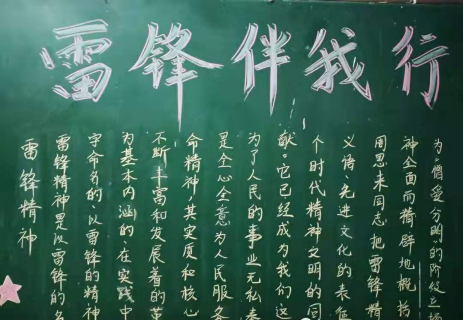 雷锋伴我行
雷锋精神
雷锋精神是以雷锋的名
字命名的,以雷锋的精神
为基本内涵的,在实践中
不断丰富和发展着的革
命精神,其实质和核心
是全心全意为人民服务
为了人民的事业无私奉
献。它已经成为我们这
个时代精神文明的同
义语、先进文化的表征
周恩来同志把雷锋精
神全面而精辟地概括
为“憎爱分明的阶级立场